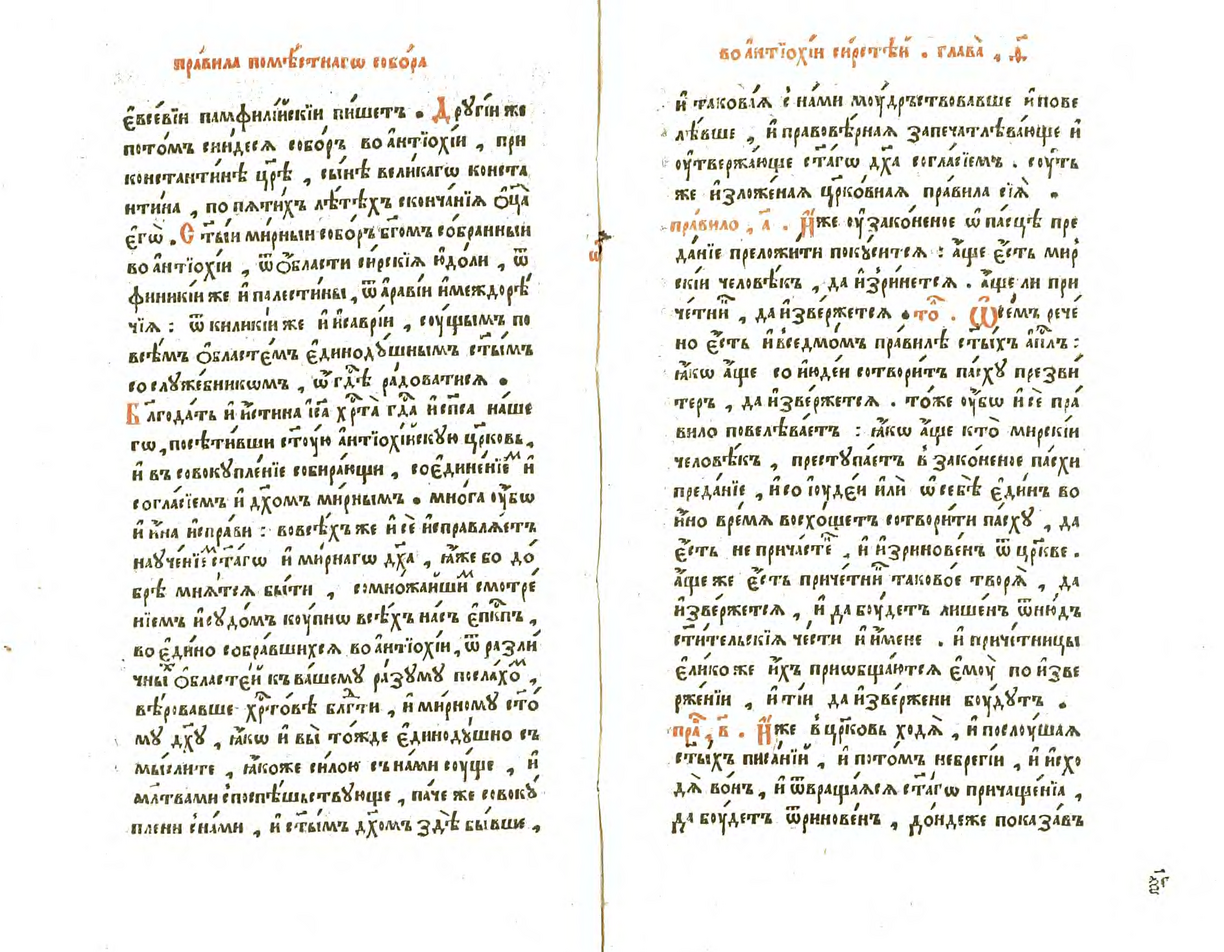 пра́вила помѣ́стнагѡ собо́ра
є҆всеві́и памфилі́искїи пи́шетъ . Дрꙋгі́и же
пото́мъ сни́десѧ собо́ръ во а҆нтїохі́и , при
константи́нѣ цр҃ѣ , сы́нѣ вели́кагѡ конста
нти́на , по пѧти́хъ лѣ́тѣхъ сконча́нїѧ ѻ҆ц҃а
є҆гѡ̀ . Ст҃ы́и ми́рныи собо́ръ бг҃омъ со́бранныи
во а҆нтїохі́и , ѿ ѻ҆́бласти си́рскїѧ ю҆до́ли , ѿ
финикі́и же и҆ палести́ны , ѿ а҆раві́и и҆ междорѣ́
чїѧ : ѿ киликі́и же и҆ и҆саврі́и , сꙋ́щымъ по
всѣ́мъ ѻ҆бласте́мъ є҆динодꙋ́шнымъ ст҃ы́мъ
со слꙋже́бникѡмъ , ѡ҆ гдⷭ҇ѣ ра́доватисѧ .
Блгⷣода́ть и҆ и҆́стина і҆с҃а хрⷭ҇та̀ гдⷭ҇а и҆ сп҃са на́ше
гѡ , посѣти́вши ст҃ꙋ́ю а҆нтїохі́искꙋю цр҃ковь ,
и҆ въ совокꙋпле́нїе собира́ющи , соєдине́нїеⷨ и҆
согла́сїемъ и҆ дх҃омъ ми́рнымъ . мно́га ᲂу҆́бѡ
и҆ и҆́на и҆спра́ви : во всѣ́хъ же и҆ сѐ и҆справлѧ́етъ
наꙋче́нїеⷨ ст҃а́гѡ и҆ ми́рнагѡ дх҃а , ꙗ҆̀же бо до́
брѣ мнѧ́тсѧ бы́ти , со мно́жайшиⷨ смотре́
нїемъ и҆ сꙋдо́мъ кꙋ́пнѡ всѣ́хъ на́съ є҆пⷭ҇кпъ ,
во є҆ди́но собра́вшихсѧ во а҆нтїохі́и , ѿ разли́
чныⷯ ѻ҆бласте́й къ ва́шемꙋ ра́зꙋмꙋ посла́хоⷨ ,
вѣ́ровавше хрⷭ҇то́вѣ блгⷣти , и҆ ми́рномꙋ ст҃о́
мꙋ дх҃ꙋ , ꙗ҆́кѡ и҆ вы̀ то́жде є҆динодꙋ́шно съ
мы́слите , ꙗ҆́коже си́лою съ на́ми сꙋ́ще , и҆
мл҃твами споспѣ́шьствꙋюще , па́че же совокꙋ́
плени с на́ми , и҆ ст҃ы́мъ дх҃омъ здѣ̀ бы́вше ,
во а҆нтїохі́и си́рстѣй . глава̀ ,
и҆ такова́ѧ с на́ми мꙋ́дрьствовавше и҆ пове
лѣ́вше , и҆ правовѣ́рнаѧ запечатлѣва́юще и҆
ᲂу҆твержа́юще ст҃а́гѡ дх҃а согла́сїемъ . сꙋ́ть
же и҆зложе́наѧ цр҃ко́внаѧ пра́вила сїѧ̀ .
пра́вило , а҃ . И҆́же ᲂу҆зако́неное ѡ҆ па́сцѣ пре
да́нїе преложи́ти покꙋси́тсѧ : а҆́ще є҆́сть мир
скі́и человѣ́къ , да и҆зри́нетсѧ . а҆́ще ли при
че́тниⷦ , да и҆зве́ржетсѧ . тоⷧ . Ѡ҆ се́мъ рече
но є҆́сть и҆ в седмо́мъ пра́вилѣ ст҃ы́хъ а҆пⷭ҇лъ :
ꙗ҆́кѡ а҆́ще со і҆юде́и сотвори́тъ па́схꙋ презви́
теръ , да и҆зве́ржетсѧ . то́же ᲂу҆́бѡ и҆ сѐ пра́
вило повелѣва́етъ : ꙗ҆́кѡ а҆́ще кто̀ мирскі́и
человѣ́къ , престꙋпа́етъ в зако́неное па́схи
преда́нїе , и҆ со і҆ꙋде́и и҆лѝ ѡ҆ себѣ̀ є҆ди́нъ во
и҆́но вре́мѧ восхо́щетъ сотвори́ти па́схꙋ , да
є҆́сть не прича́стеⷩ , и҆ и҆зринове́нъ ѿ цр҃кве .
а҆́ще же є҆́сть приче́тниⷦ таково́е творѧ̀ , да
и҆зве́ржетсѧ , и҆ да бꙋ́детъ лише́нъ ѿню́дъ
ст҃и́тельскїѧ че́сти и҆ и҆́мене . и҆ приче́тницы
є҆ли́ко же и҆́хъ приѡбща́ютсѧ є҆мꙋ̀ по и҆зве
рже́нїи , и҆ ті́и да и҆зве́ржени бꙋ́дꙋтъ .
праⷡ , в҃ . И҆́же в цр҃ковь ходѧ̀ , и҆ послꙋ́шаѧ
ст҃ы́хъ писа́нїй , и҆ пото́мъ небрегі́и , и҆ и҆схо
дѧ̀ во́нъ , и҆ ѿвраща́ѧсѧ ст҃а́гѡ причаще́нїѧ ,
да бꙋ́детъ ѿринове́нъ , до́ндеже показа́въ